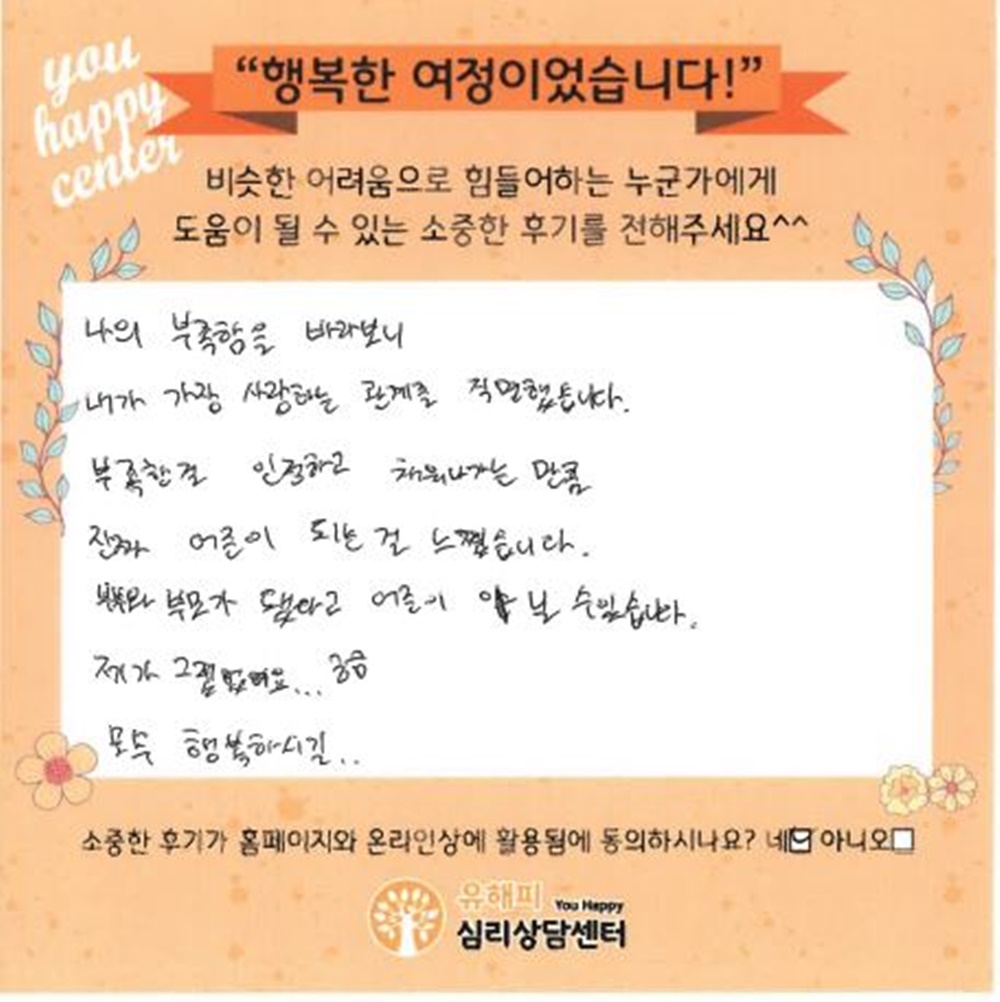 you
happy
center
“행복한 여정이었습니다!”
비슷한 어려움으로 힘들어하는 누군가에게
도움이 될 수 있는 소중한 후기를 전해주세요^^
나의 부족함을 바라보니
내가 가장 사랑하는 관계를 직면했습니다.
부족한걸 인정하고 채워나가는 만큼
진짜 어른이 되는 걸 느꼈습니다.
부부와 부모가 됐다고 어른이 아닐 수있습니다.
제가 그랬었어요...
모두 행복하시길..
소중한 후기가 홈페이지와 온라인상에 활용됨에 동의하시나요? 네 아니오
유해피 You Happy
심리상담센터